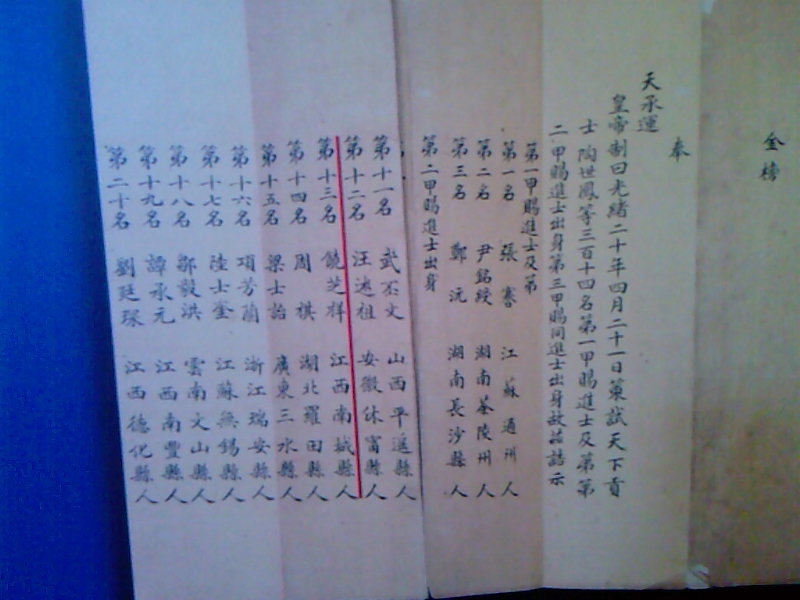 金榜
奉
天承運
皇帝制曰光緒二十年四月二十一日策試天下貢
士陶世鳳等三百十四名第一甲賜進士及第第
二甲賜進士出身第三甲賜同進士出身故茲誥示
第一甲賜進士及第
第一名 張謇 江蘇通州人
第二名 尹銘綬 湖南茶陵州人
第三名 鄭沅 湖南長沙縣人
第二甲賜進士出身
第十一名 武丕文 山西平遥縣人
第十二名 汪 祖 安徽休甯縣人
第十三名 饒芝祥 江西南城縣人
第十四名 周棋 湖北羅田縣人
第十五名 梁士詒 廣東三水縣人
第十六名 項芳蘭 浙江瑞安縣人
第十七名 陸士奎 江蘇無錫縣人
第十八名 鄒毅洪 雲南文山縣人
第十九名 譚承元 江西南豐縣人
第二十名 劉廷琛 江西德化縣人